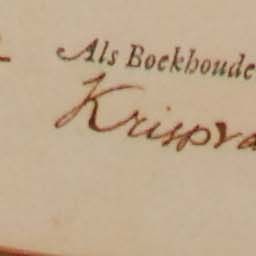 Als Boekhoude
Krispva